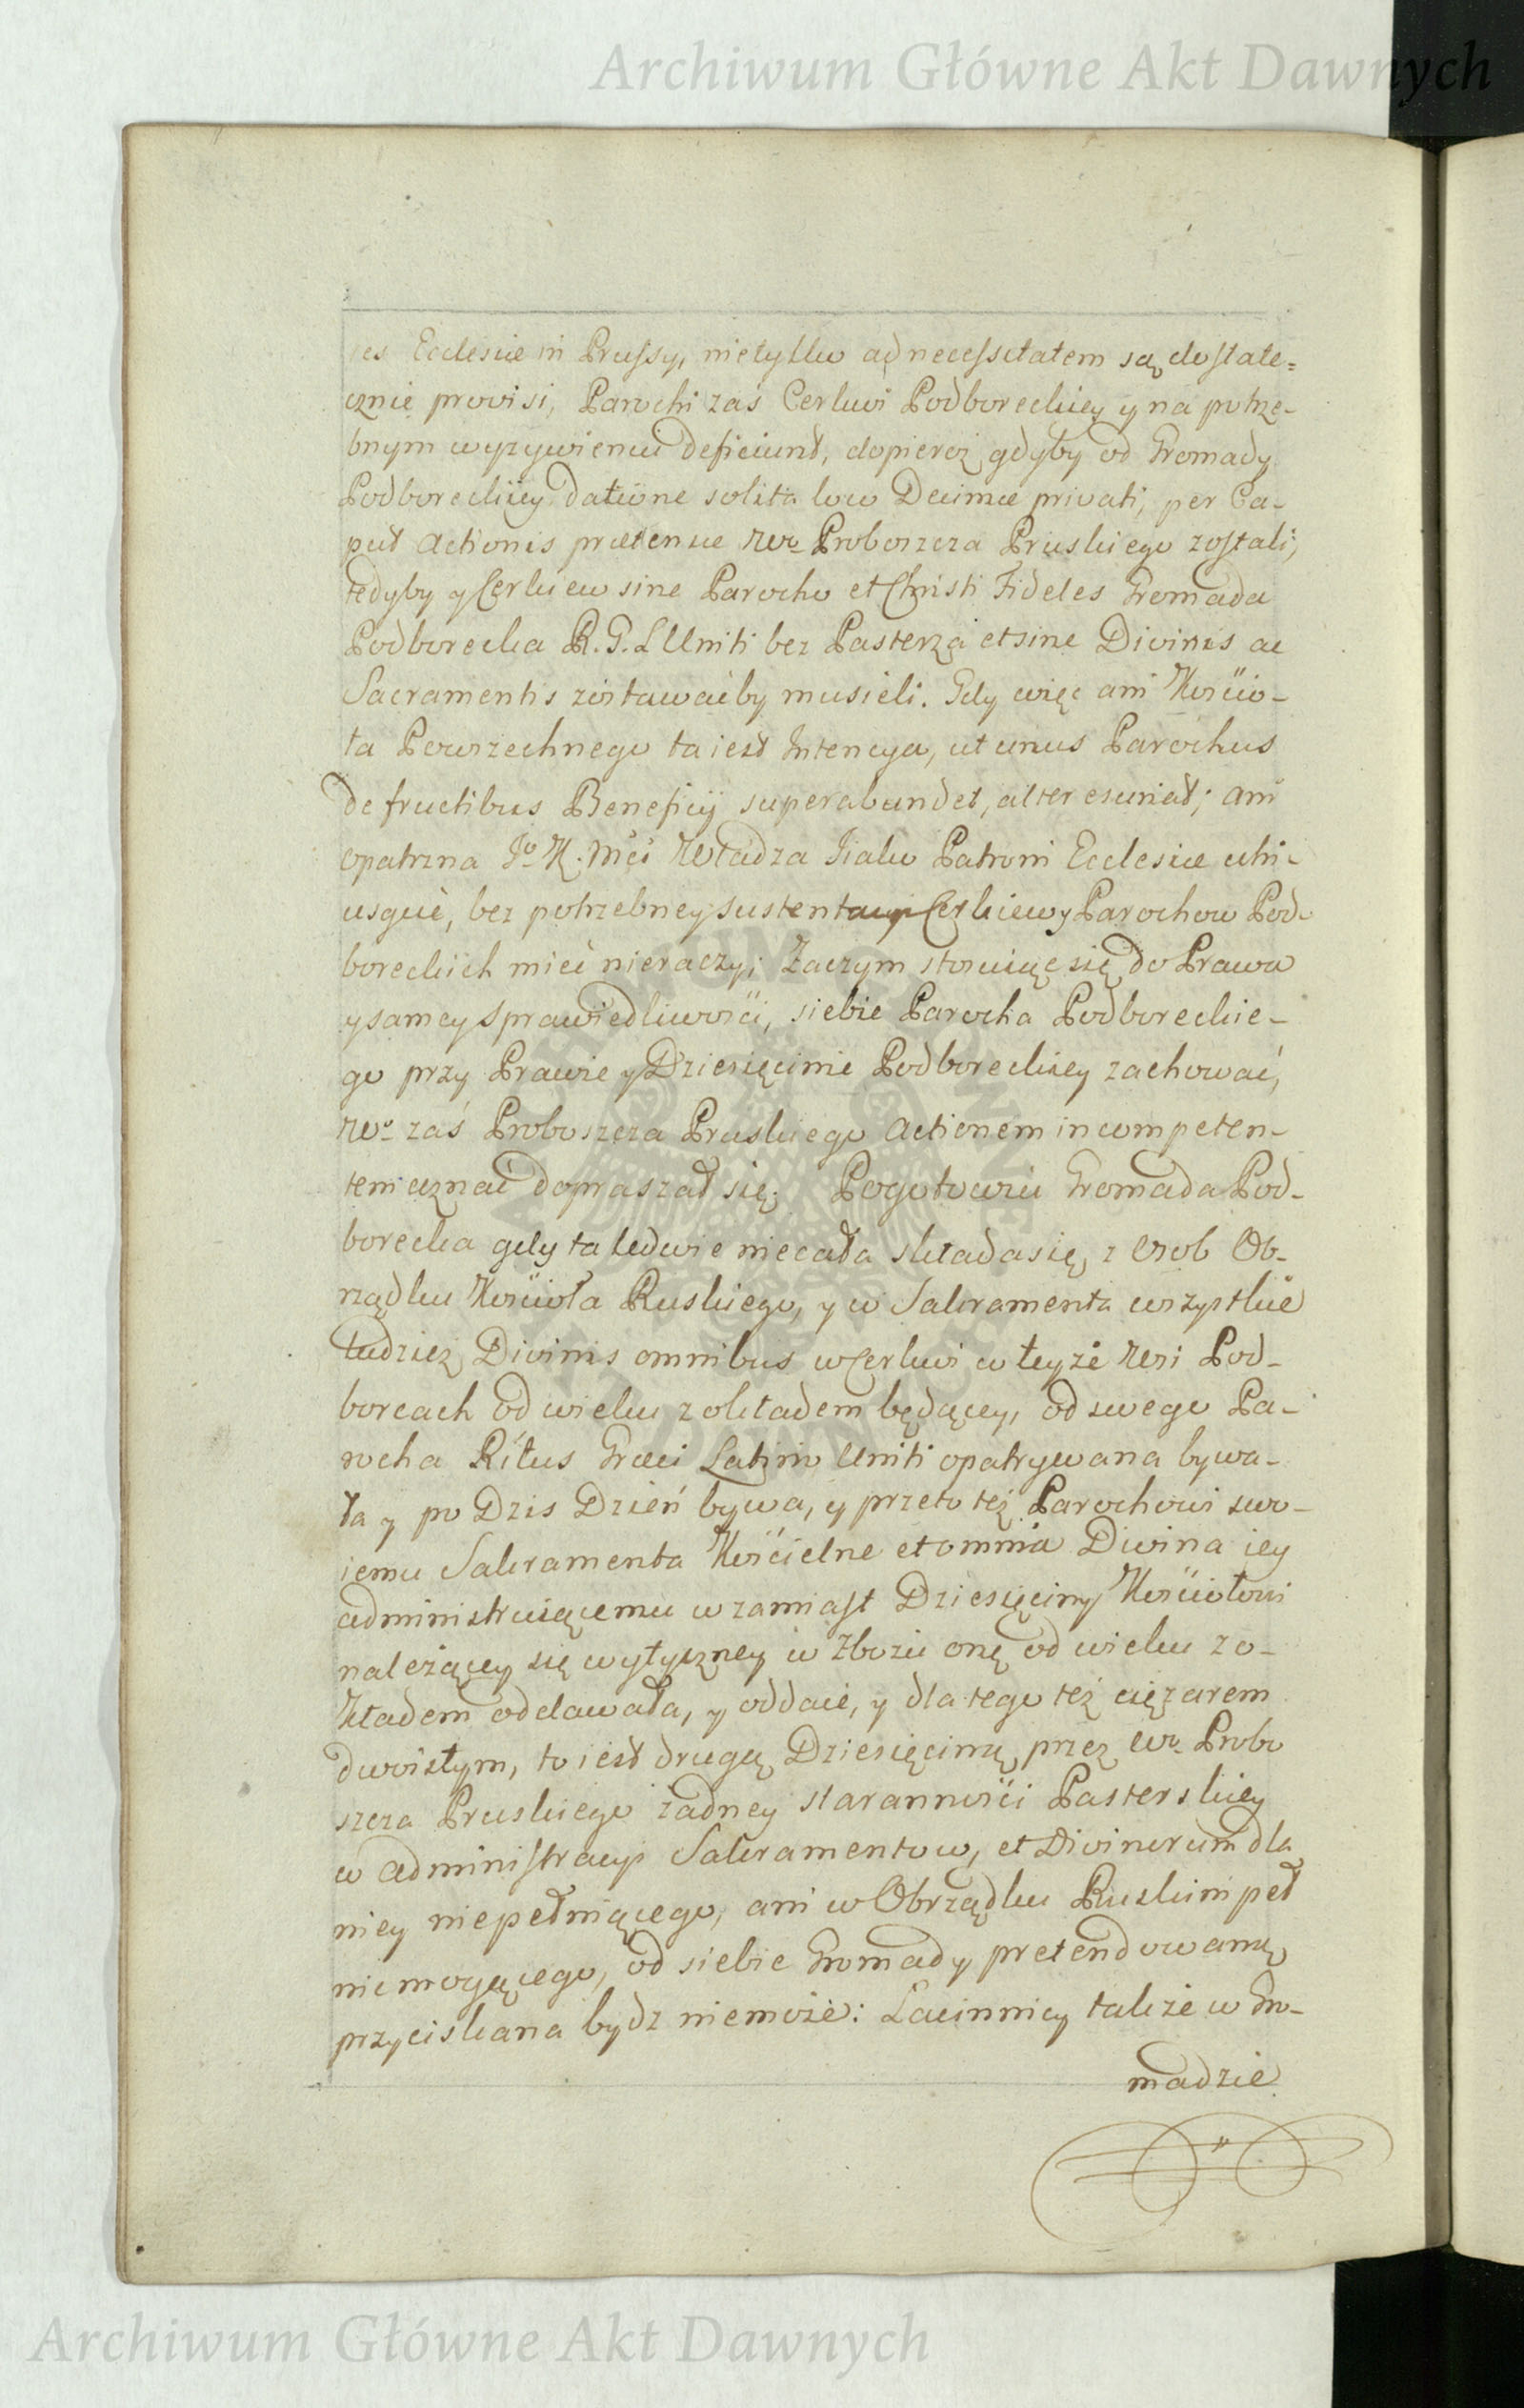 Archiwum Główne Akt Dawnych
ies Ecclesiæ in Prussy, nietylko ad necessitatem są dostate=
cznie provisi, Parochi zaś Cerkwi Podboreckiey y na potrze-
bnym wyzywieniu deficiunt, dopieroż gdyby od Gromady
Podboreckiey datione solita loco Decimæ privati, per Ca-
put Actionis prætensæ Wo Proboszcza Pruskiego zostali,
tedyby y Cerkiew sine Parocho et Christi Fideles Gromada
Podborecka R. G. L Uniti bez Pasterza et sine Divinis ac
Sacramentis zostawaćby musieli. Gdy więc ani Kościo-
ła Powszechnego ta iest Intencya, ut unus Parochus
de fructibus Beneficij superabundet, alter esuriat; ani
opatrzna Jo K. Mći Władza Jako Patroni Ecclesiæ utri-
usquè, bez potrzebney sustentacyi Cerkiew y Parochow Pod-
boreckich mieć nieraczy; Zaczym stosuiąc się do Prawa
y samey sprawiedliwości, siebie Parocha Podboreckie-
go przy Prawie y Dziesięcinie Podboreckiey zachować,
Wo zaś Proboszcza Pruskiego Actionem incompeten-
tem uznać dopraszał się. Pogotowiu Gromada Pod-
borecka gdy ta ledwie niecała składa się z Osob Ob-
rządku Kościoła Ruskiego, y w Sakramenta wszystkie
tudzież Divinis omnibus w Cerkwi w teyże Wsi Pod-
borcach od wieku zokładem będącey, od swego Pa-
rocha Ritus Græci Latino Uniti opatrywana bywa-
ła y po Dziś Dzień bywa, y przeto też Parochowi swo-
iemu Sakramenta Kościelne et omnia Divina iey
administruiącemu w zamiast Dziesięciny Kościołowi
należącey się wytyczney w Zbożu onę od wieku zo-
kładem oddawała, y oddaie, y dla tego też ciężarem
dwoistym, to iest drugą Dziesięciną przez Wo Probo
szcza Pruskiego żadney staranności Pasterskiey
w administracyi Sakramentow, et Divinorum dla
niey niepełniącego, ani w Obrządku Ruskim peł
nic mogącego, od siebie Gromady pretendowaną
przyciskana bydz niemoże: Łacinnicy także w Gro-
madzie
Archiwum Główne Akt Dawnych